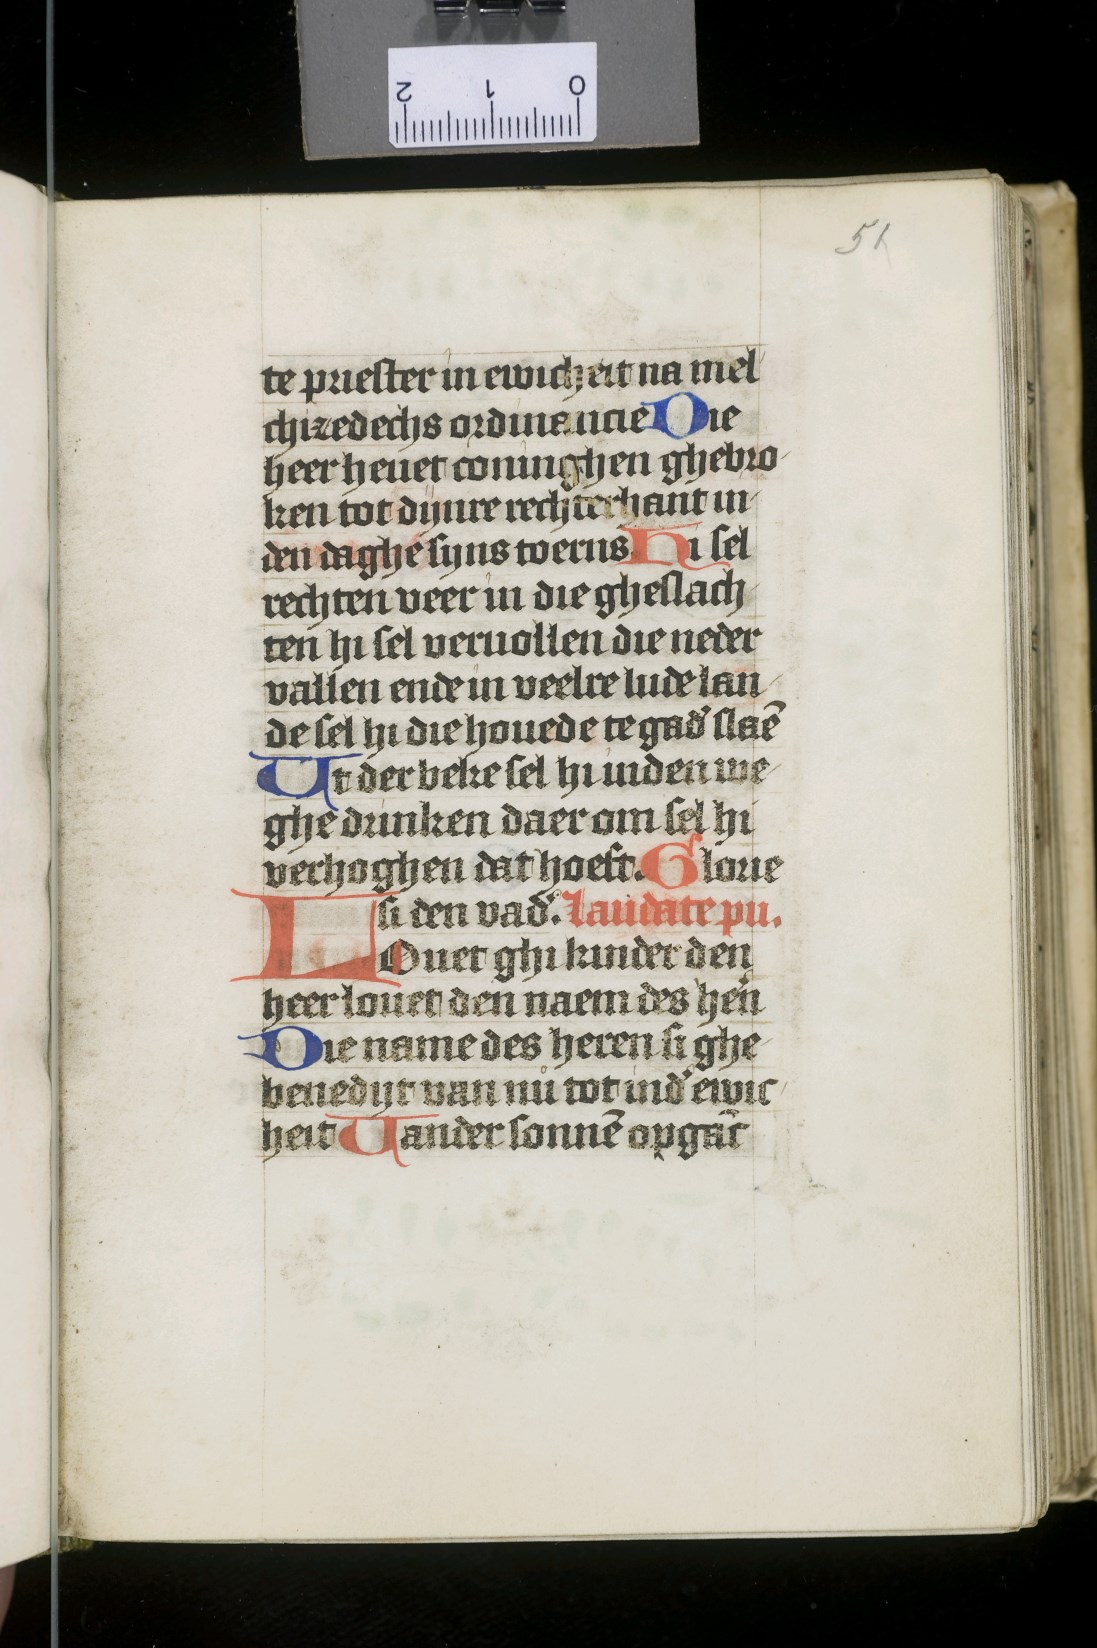 2 1 0
51
te priester in ewicheit na mel
chizedechs ordinancie Die
heer heuet coninghen ghebro-
ken tot dijnre rechterhant in-
den daghe sijns toerns. Hi sel
rechten veer in die gheslach-
ten hi sel veruollen die neder
vallen ende in veelre lude lan-
de sel hi die houede te gad' slaē
Ut der beke sel hi in den we-
ghe drinken daer om sel hi
verhoghen dat hoeft. Glorie
si den vad'. Laudate pu.
LOuet ghi kinder den
heer louet den naem des her̄n
Die name des heren si ghe-
benedijt van nu tot in d' ewic-
heit Uander sonnē opgāc